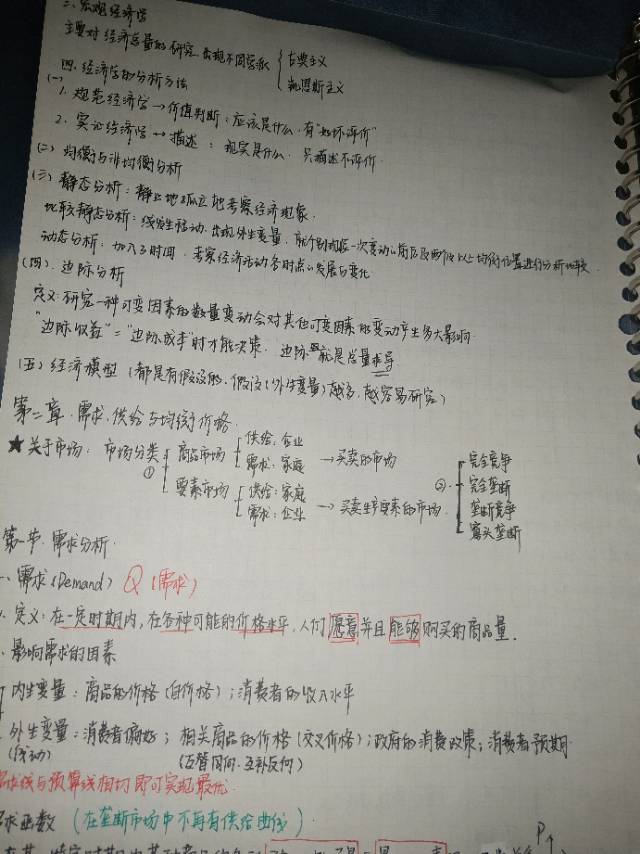 二、宏观经济学
主要对经济总量的研究,出现不同学派 { 古典主义
凯恩斯主义
四、经济学的分析方法
(一)
1. 规范经济学→价值判断:应该是什么,有“好坏评价”
2. 实证经济学→描述:现实是什么,只描述不评价.
(二) 均衡与非均衡分析
(三) 静态分析:静止地孤立地考察经济现象.
比较静态分析:线发生移动,出现外生变量,就个别现象一次变动的前后及两个以上均衡位置进行分析比较.
动态分析:加入了时间,考察经济活动各时点的发展与变化
(四) 边际分析
定义:研究一种可变因素的数量变动会对其他可变因素的变动产生多大影响
“边际收益”=“边际成本”时才能决策. 边际就是总量求导
(五) 经济模型 (都是有假设的,假设(外生变量)越多,越容易研究)
第二章 需求、供给与均衡价格.
★关于市场: 市场分类 ① { 商品市场 { 供给:企业
需求:家庭 →买卖的市场
要素市场 { 供给:家庭
需求:企业 →买卖生产要素的市场.
② { 完全竞争
完全垄断
垄断竞争
寡头垄断
第一节 需求分析.
一、需求(Demand) Q(需求)
定义:在一定时期内,在各种可能的价格水平,人们愿意并且能够购买的商品量.
影响需求的因素
内生变量:商品的价格(自价格);消费者的收入水平
外生变量:消费者偏好;相关商品的价格(交叉价格);政府的消费政策;消费者预期
(线动) (互替同向,互补反向)
线与预算线相切即可实现最优
求函数 (在垄断市场中不再有供给曲线)
P↑